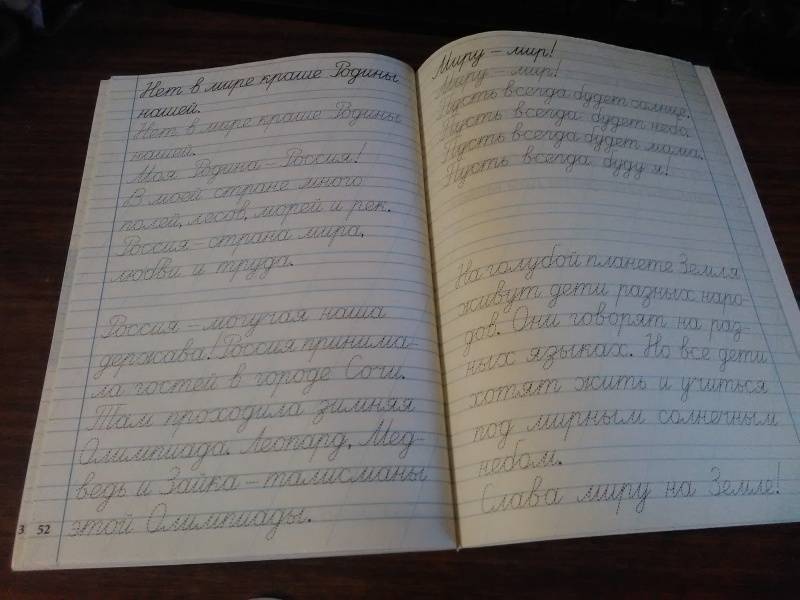 Нет в мире краше Родины
нашей.
Нет в мире краше Родины
нашей.
Моя Родина – Россия!
В моей стране много
полей, лесов, морей и рек.
Россия – страна мира,
любви и труда.
Россия – могучая наша
держава! Россия принима-
ла гостей в городе Сочи.
Там проходила зимняя
Олимпиада. Леопард, Мед-
ведь и Зайка – талисманы
этой Олимпиады.
3 52
Миру – мир!
Миру – мир!
Пусть всегда будет солнце.
Пусть всегда будет небо.
Пусть всегда будет мама.
Пусть всегда буду я!
На голубой планете Земля
живут дети разных наро-
дов. Они говорят на раз-
ных языках. Но все дети
хотят жить и учиться
под мирным солнечным
небом.
Слава миру на Земле!